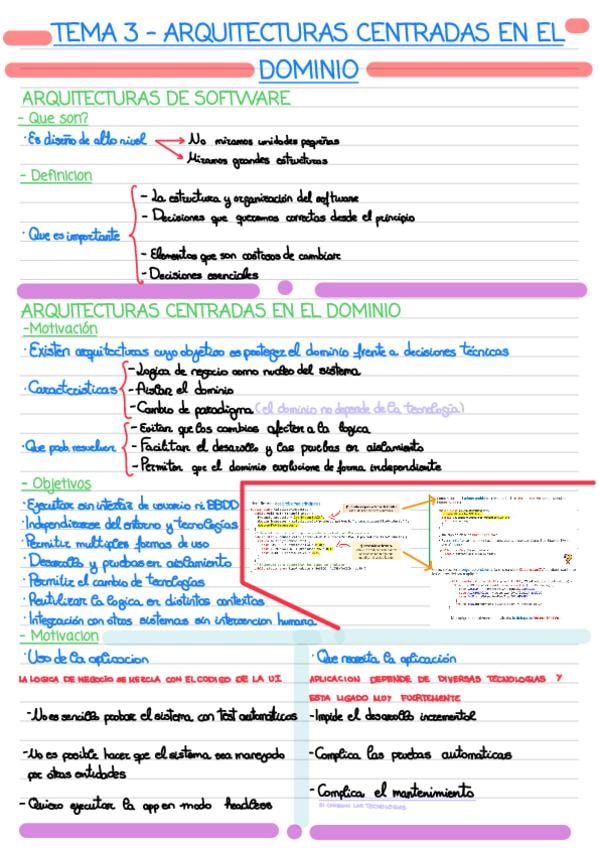 TEMA 3 - ARQUITECTURAS CENTRADAS EN EL
DOMINIO
ARQUITECTURAS DE SOFTWARE
- Que son?
· Es diseño de alto nivel
No miramos unidades pequeñas
Miramos grandes estructuras
- Definicion
· Que es importante
- La estructura y organización del software
- Decisiones que queremos correctas desde el principio
- Elementos que son costosos de cambiar
- Decisiones esenciales
ARQUITECTURAS CENTRADAS EN EL DOMINIO
-Motivación
· Existen arquitecturas cuyo objetivo es proteger el dominio frente a decisiones técnicas
· Caracteristicas
-Logica de negocio como nucleo del sistema
-Aislar el dominio
-Cambio de paradigma (el dominio no depende de la tecnología)
· Que prob. resuelven
- Evitar que los cambios afecten a la logica
- Facilitar el desarollo y las pruebas en aislamiento
- Permiten que el dominio evolucione de forma independiente
- Objetivos
· Ejecutar sin interfaz de usuario ni BBDD
· Independizarse del entorno y tecnologías
· Permitir multiples formas de uso
· Desarrollo y pruebas en aislamiento
· Permitir el cambio de tecnologías
· Reutilizar la logica en distintos contextos
· Integración con otros sistemas sin intervencion humana
- Motivacion
· Uso de la aplicacion
LA LOGICA DE NEGOCIO SE MEZCLA CON EL CODIGO DE LA UI
-No es sencillo probar el sistema con test automáticos
-No es posible hacer que el sistema sea manejado
por otras entidades
- Quiero ejecutar la app en modo headless
· Que necesita la aplicación
APLICACION DEPENDE DE DIVERSAS TECNOLOGIAS Y
ESTA LIGADO MUY FUERTEMENTE
-Impide el desarollo incremental
-Complica las pruebas automaticas
- Complica el mantenimiento
SI CAMBIAN LAS TECNOLOGIAS